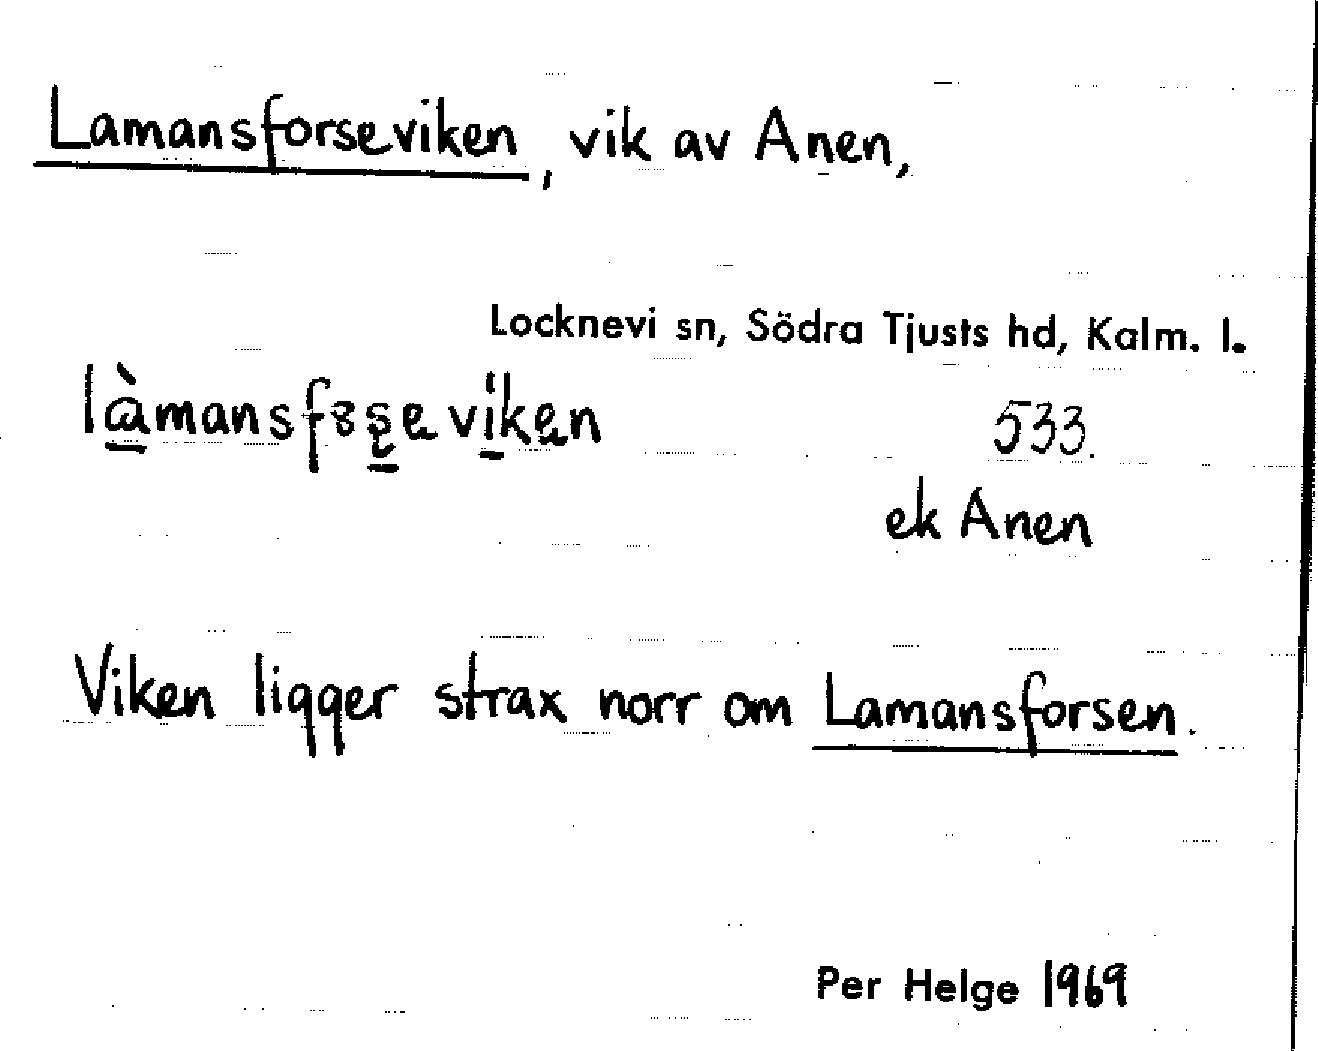 Lamansforseviken, vik av Anen,
Locknevi sn, Södra Tjusts hd, Kalm. l.
533.
ek Anen
Viken ligger strax norr om Lamansforsen.
Per Helge 1969